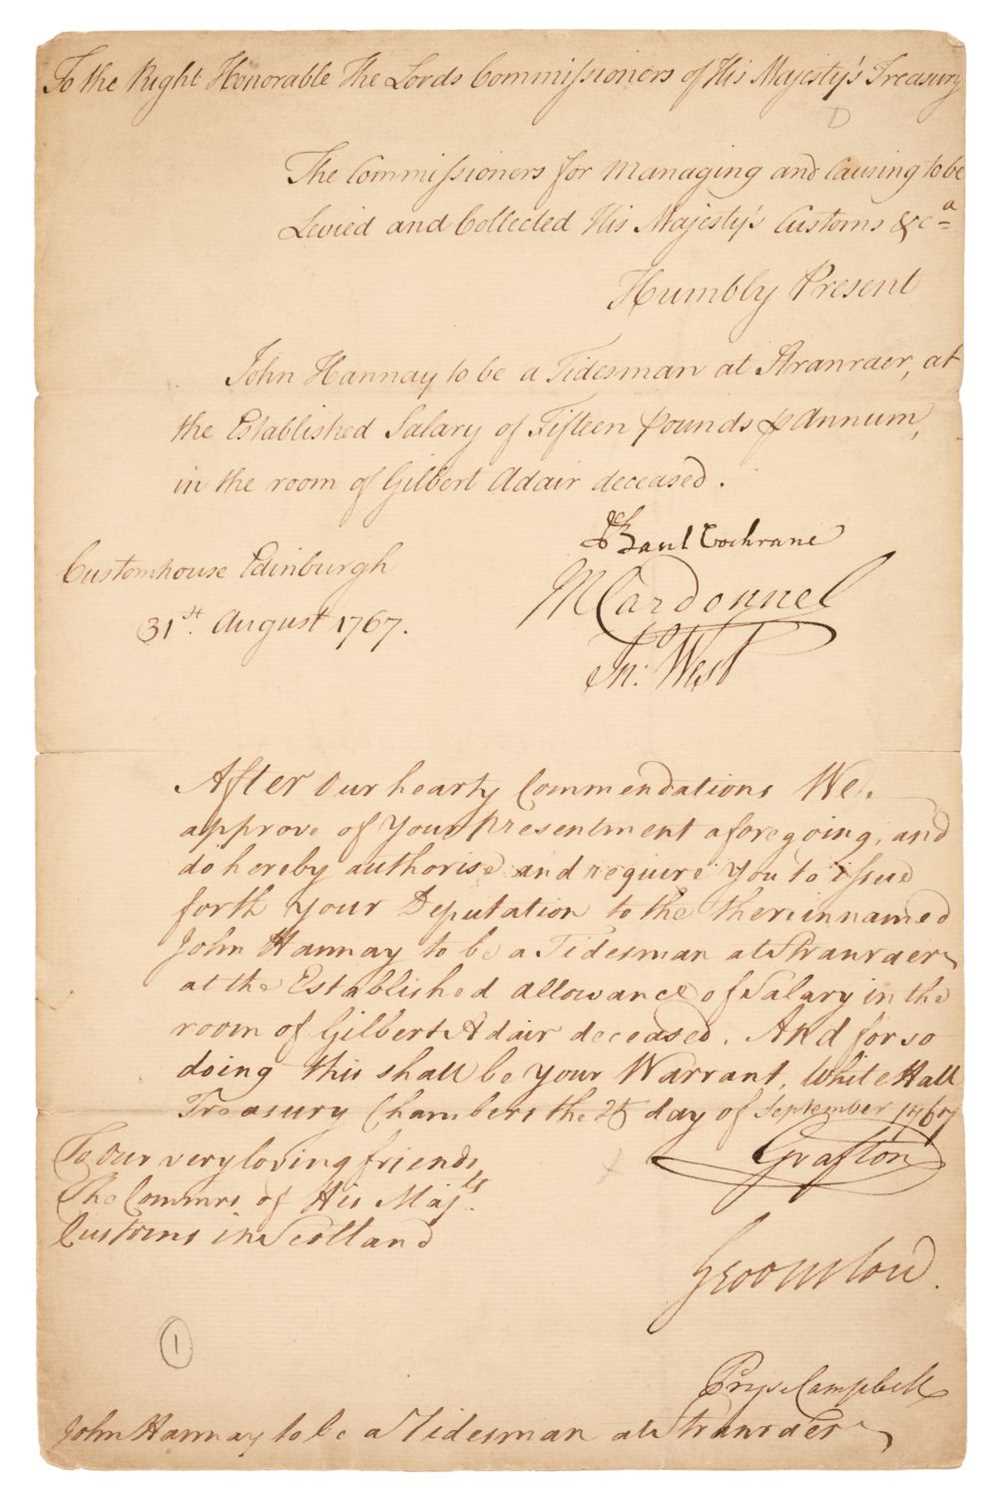 To the Right Honorable The Lords Commissioners of His Majesty's Treasury
D
The Commissioners for Managing and Causing to be
Levied and Collected His Majesty's Customs &cᵃ
Humbly Present
John Hannay to be a Tidesman at Stranraer, at
the Established Salary of Fifteen pounds ⅌ Annum,
in the room of Gilbert Adair deceased.
Basil Cochrane
Customhouse Edinburgh
MCardonnel
31st. August 1767.
Jno: West
After Our hearty Commendations We
approve of Your Presentment aforegoing, and
do hereby authorise and require You to issue
forth Your Deputation to the therein named
John Hannay to be a Tidesman at Stranraer
at the Established allowance of Salary in the
room of Gilbert Adair deceased. And for so
doing this shall be Your Warrant. White Hall
Treasury Chambers the 25 day of September 1767
To Our very loving friends
Grafton
The Commrs of His Majts.
Customs in Scotland
1
Pryse Campbell
John Hannay to be a Tidesman at Stranraer